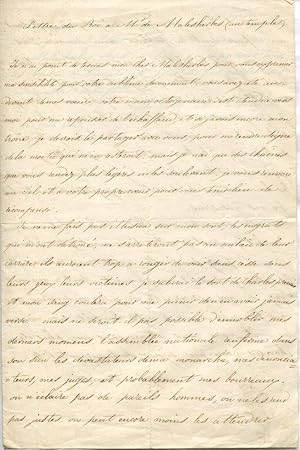 Lettre du Roi a Mr de Malesherbes (au temple).
Je n'ai point de termes mon cher Malesherbes pour vous exprimer
ma sensibilité pour votre sublime devouement, vous avez été au
devant de mes vœux, votre main octogenaire s'est tendue vers
moi pour me repousser de l'echaffaud, et si j'avais encore mon
trone, je devrais le partager avec vous pour me rendre digne
de la moitié qui m'en resterait, mais je n'ai que des chaines
que vous rendez plus legeres en les soulevant, je vous renvoie
au ciel et a votre propre cœur pour vous tenir lieu de
recompense.
Je ne me fais pas illusion sur mon sort, les ingrats
qui m'ont detroné, ne s'arreteront pas au milieu de leur
carriere ils auraient trop a rougir de voir sans cesse sous
leurs yeux leur victime, je subirai le sort de charles premier
et mon sang coulera pour me punir de n'en avoir jamais
versé. mais ne serait il pas possible d'ennoblir mes
derniers momens l'assemblée nationale renferme dans
son sein les devastateurs de ma monarchie, mes denoncia-
teurs, mes juges, et probablement mes bourreaux.
on n'éclaire pas de pareils hommes, on ne les rend
pas justes on peut encore moins les attendrir